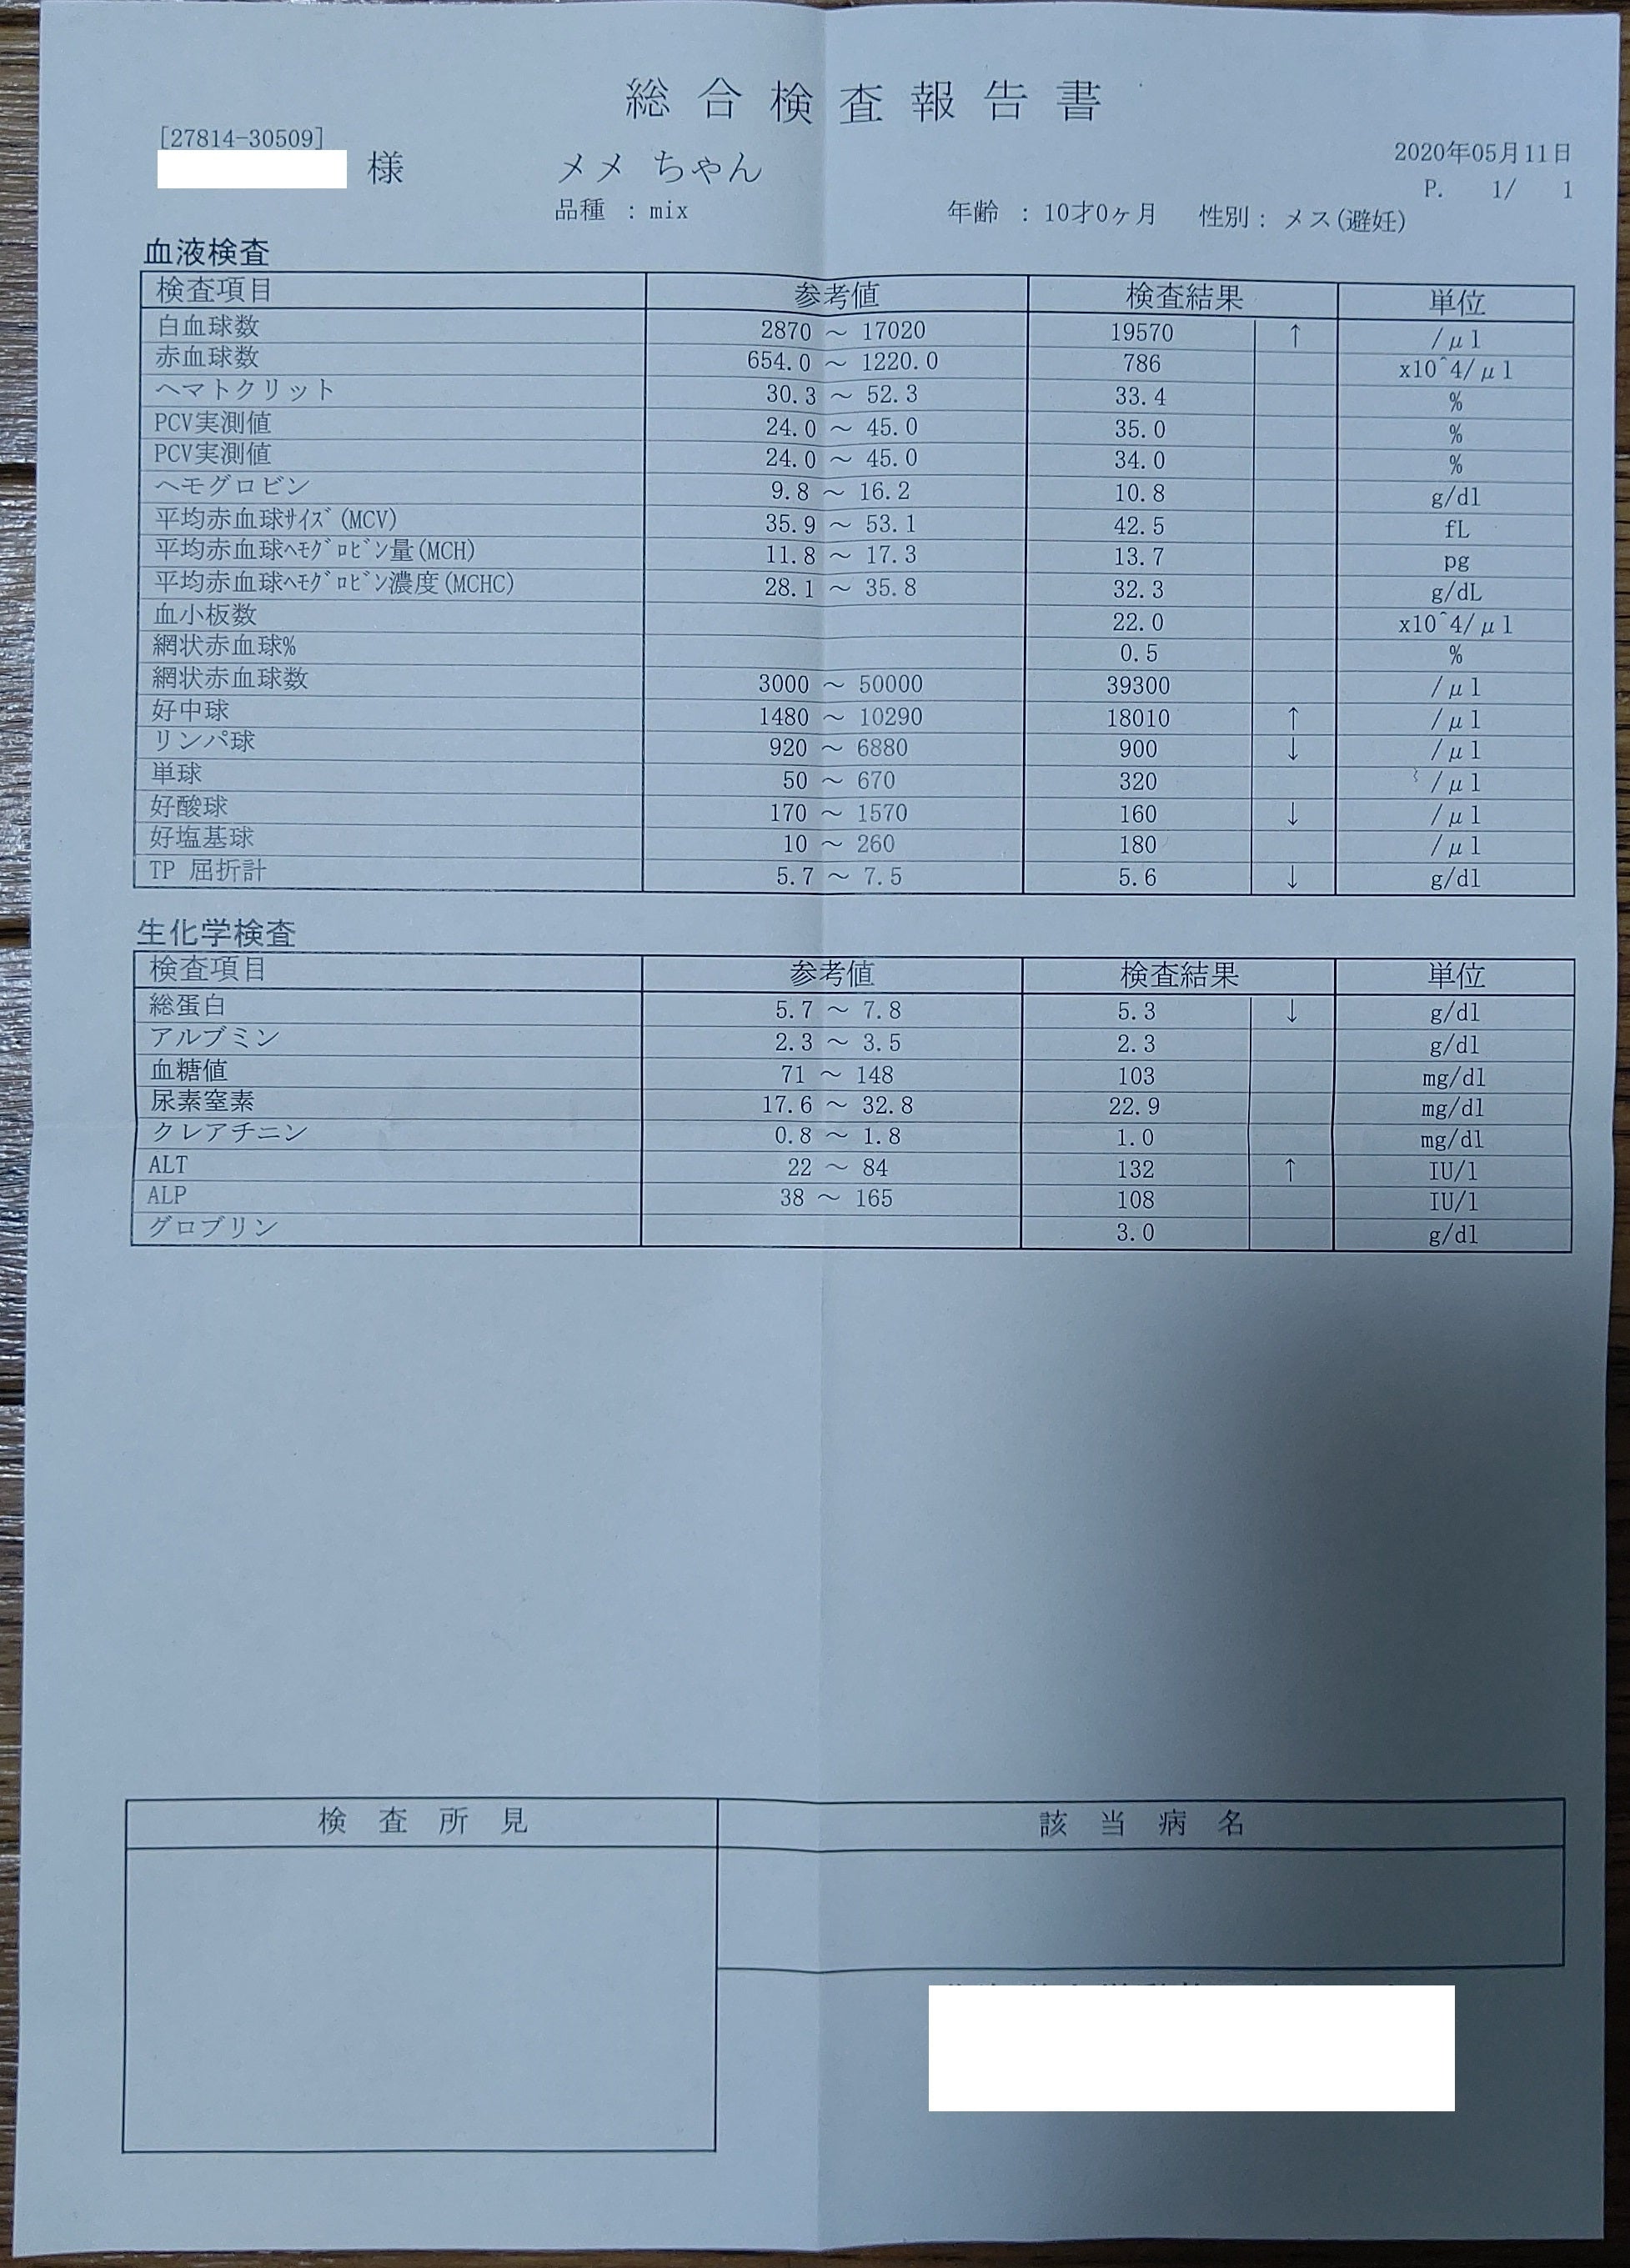 総合検査報告書
[27814-30509]
様 メメ ちゃん 2020年05月11日
P. 1/ 1
品種 : mix 年齢 : 10才0ヶ月 性別 : メス(避妊)
血液検査
検査項目 参考値 検査結果 単位
白血球数 2870 ～ 17020 19570 ↑ /μl
赤血球数 654.0 ～ 1220.0 786 x10^4/μl
ヘマトクリット 30.3 ～ 52.3 33.4 %
PCV実測値 24.0 ～ 45.0 35.0 %
PCV実測値 24.0 ～ 45.0 34.0 %
ヘモグロビン 9.8 ～ 16.2 10.8 g/dl
平均赤血球ｻｲｽﾞ(MCV) 35.9 ～ 53.1 42.5 fL
平均赤血球ﾍﾓｸﾞﾛﾋﾞﾝ量(MCH) 11.8 ～ 17.3 13.7 pg
平均赤血球ﾍﾓｸﾞﾛﾋﾞﾝ濃度(MCHC) 28.1 ～ 35.8 32.3 g/dL
血小板数 22.0 x10^4/μl
網状赤血球% 0.5 %
網状赤血球数 3000 ～ 50000 39300 /μl
好中球 1480 ～ 10290 18010 ↑ /μl
リンパ球 920 ～ 6880 900 ↓ /μl
単球 50 ～ 670 320 /μl
好酸球 170 ～ 1570 160 ↓ /μl
好塩基球 10 ～ 260 180 /μl
TP 屈折計 5.7 ～ 7.5 5.6 ↓ g/dl
生化学検査
検査項目 参考値 検査結果 単位
総蛋白 5.7 ～ 7.8 5.3 ↓ g/dl
アルブミン 2.3 ～ 3.5 2.3 g/dl
血糖値 71 ～ 148 103 mg/dl
尿素窒素 17.6 ～ 32.8 22.9 mg/dl
クレアチニン 0.8 ～ 1.8 1.0 mg/dl
ALT 22 ～ 84 132 ↑ IU/l
ALP 38 ～ 165 108 IU/l
グロブリン 3.0 g/dl
検査所見 該当病名